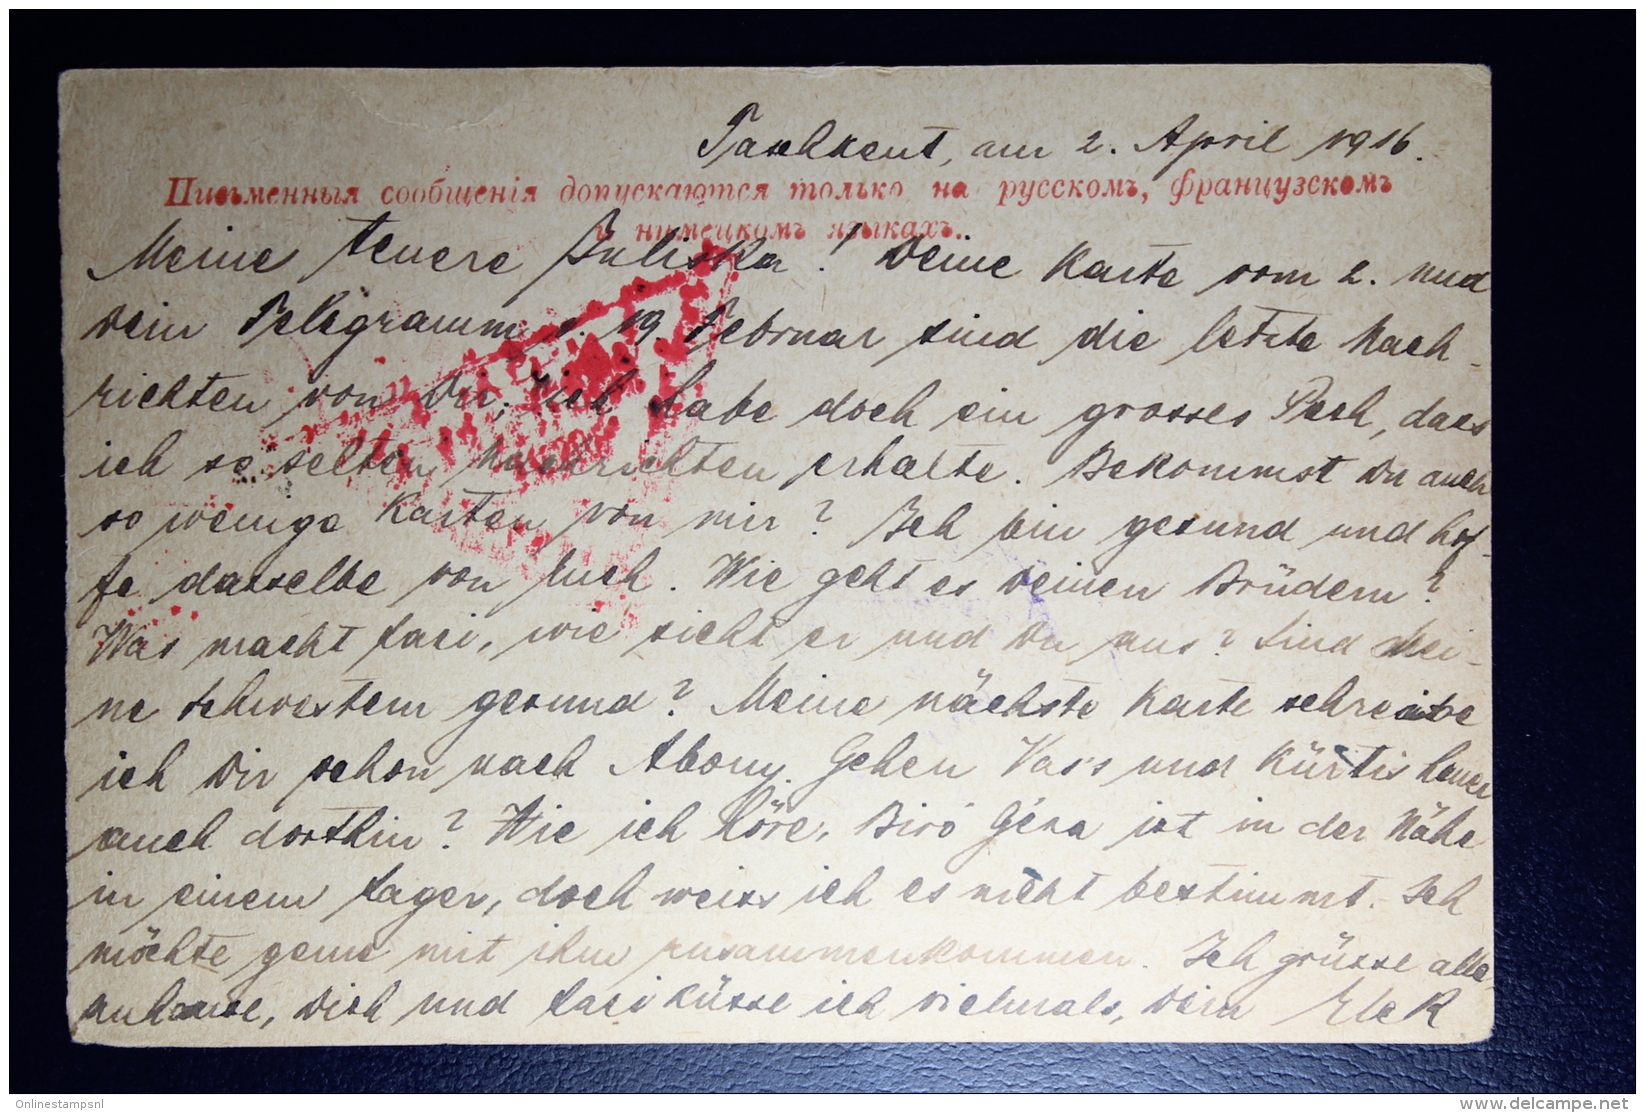 Taschkent, am 2. April 1916.
Письменныя сообщенія допускаются только на русскомъ, французскомъ
и нѣмецкомъ языкахъ.
Meine teuere Juliska! Deine Karte vom 2. und
Dein Telegramm v. 19. Februar sind die letzte Nach-
richten von Dir; ich habe doch ein grosses Pech, dass
ich so selten Nachrichten erhalte. Bekommst Du auch
so wenige Karten von mir? Ich bin gesund und hof-
fe dasselbe von Euch. Wie geht es Deinen Brüdern?
Was macht Laci, wie sieht er und Du aus? Sind Mei-
ne Schwestern gesund? Meine nächste Karte schreibe
ich Dir schon nach Abony. Gehen Vass und Kürtis heuer
auch dorthin? Wie ich höre, Biró Géza ist in der Nähe
in einem Lager, doch weiss ich es nicht bestimmt. Ich
möchte gerne mit ihm zusammenkommen. Ich grüsse alle
zuhause, Dich und Laci küsse ich vielmals, Dein Elek
Onlinestampsnl
www.delcampe.net